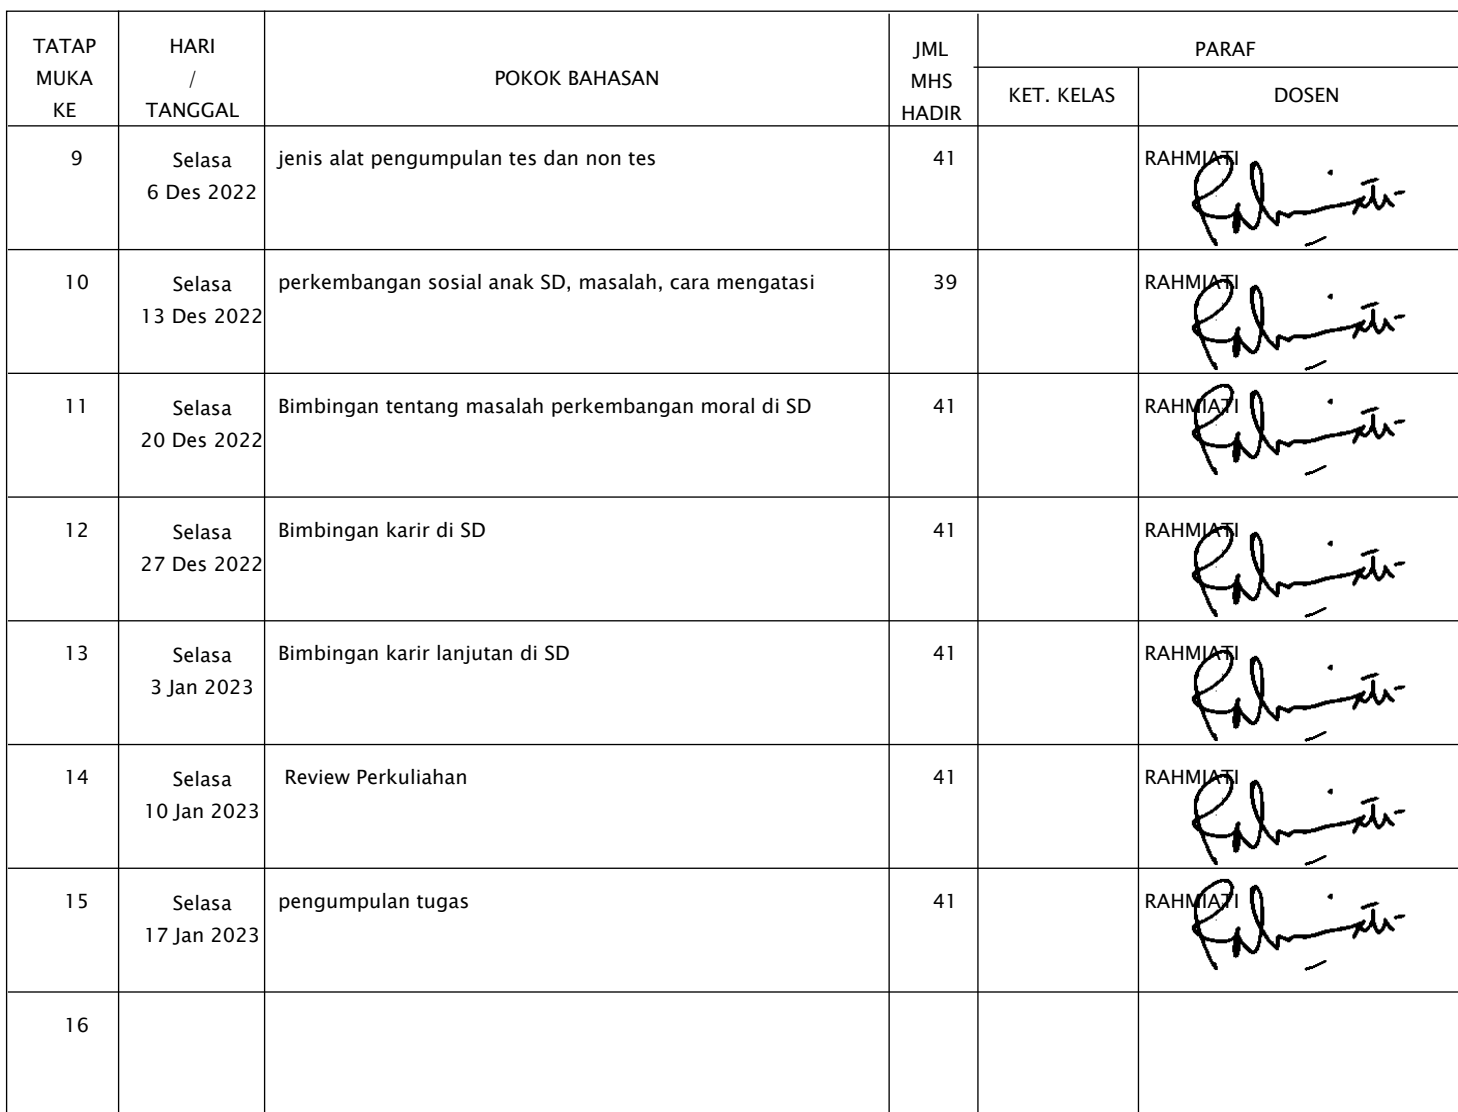 TATAP
MUKA
KE
HARI
/
TANGGAL
POKOK BAHASAN
JML
MHS
HADIR
PARAF
KET. KELAS
DOSEN
9
Selasa
6 Des 2022
jenis alat pengumpulan tes dan non tes
41
RAHMIATI
10
Selasa
13 Des 2022
perkembangan sosial anak SD, masalah, cara mengatasi
39
RAHMIATI
11
Selasa
20 Des 2022
Bimbingan tentang masalah perkembangan moral di SD
41
RAHMIATI
12
Selasa
27 Des 2022
Bimbingan karir di SD
41
RAHMIATI
13
Selasa
3 Jan 2023
Bimbingan karir lanjutan di SD
41
RAHMIATI
14
Selasa
10 Jan 2023
Review Perkuliahan
41
RAHMIATI
15
Selasa
17 Jan 2023
pengumpulan tugas
41
RAHMIATI
16